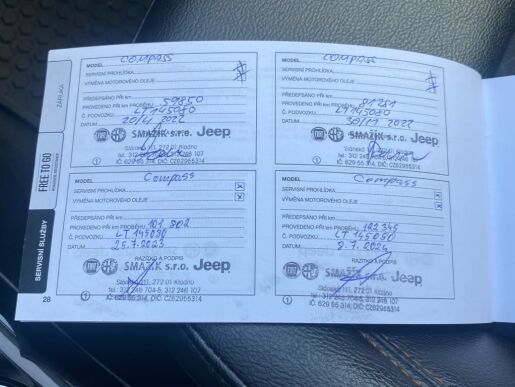 ZÁRUKA
FREE TO GO
SERVISNÍ SLUŽBY
28
MODEL Compass
SERVISNÍ PROHLÍDKA
VÝMĚNA MOTOROVÉHO OLEJE
PŘEDEPSÁNO PŘI km
PROVEDENO PŘI km PROBĚHU 59850
Č. PODVOZKU LT145080
DATUM 20/4 2022
SMAŽÍK s.r.o. Jeep
Slánská 111, 272 01 Kladno
IČ: 629 55 314, DIČ: CZ62955314
1
MODEL Compass
SERVISNÍ PROHLÍDKA
VÝMĚNA MOTOROVÉHO OLEJE
PŘEDEPSÁNO PŘI km
PROVEDENO PŘI km PROBĚHU 81251
Č. PODVOZKU LT145080
DATUM 30/11 2022
SMAŽÍK s.r.o. Jeep
Slánská 111, 272 01 Kladno
IČ: 629 55 314, DIČ: CZ62955314
1
MODEL Compass
SERVISNÍ PROHLÍDKA x
VÝMĚNA MOTOROVÉHO OLEJE x
PŘEDEPSÁNO PŘI km
PROVEDENO PŘI km PROBĚHU 101 302
Č. PODVOZKU LT 145080
DATUM 25.7.2023
RAZÍTKO A PODPIS
SMAŽÍK s.r.o. Jeep
Slánská 111, 272 01 Kladno
tel.: 312 248 704-5, 312 246 107
IČ: 629 55 314, DIČ: CZ62955314
1
MODEL Compass
SERVISNÍ PROHLÍDKA x
VÝMĚNA MOTOROVÉHO OLEJE x
PŘEDEPSÁNO PŘI km
PROVEDENO PŘI km PROBĚHU 122 345
Č. PODVOZKU LT 145080
DATUM 8.7.2024
RAZÍTKO A PODPIS
SMAŽÍK s.r.o. Jeep
Slánská 111, 272 01 Kladno
tel.: 312 248 704-5, 312 246 107
IČ: 629 55 314, DIČ: CZ62955314
1